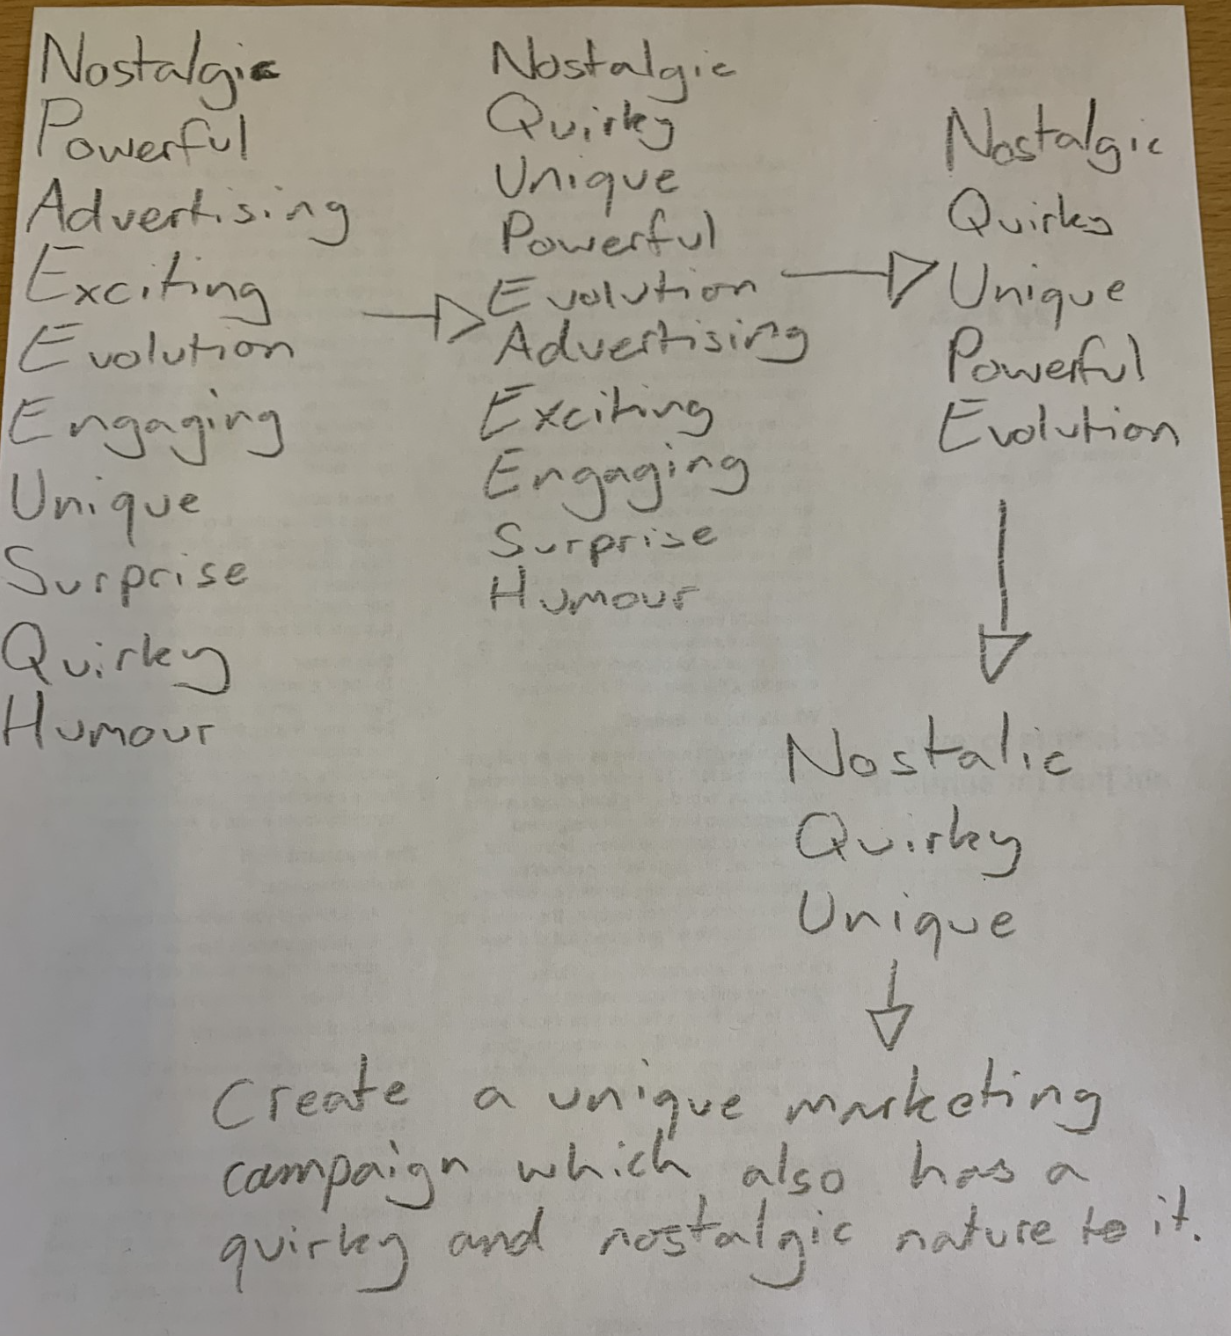 Nostalgic
Powerful
Advertising
Exciting
Evolution
Engaging
Unique
Surprise
Quirky
Humour
Nostalgic
Quirky
Unique
Powerful
Evolution
Advertising
Exciting
Engaging
Surprise
Humour
Nostalgic
Quirky
Unique
Powerful
Evolution
Nostalic
Quirky
Unique
Create a unique marketing
campaign which also has a
quirky and nostalgic nature to it.